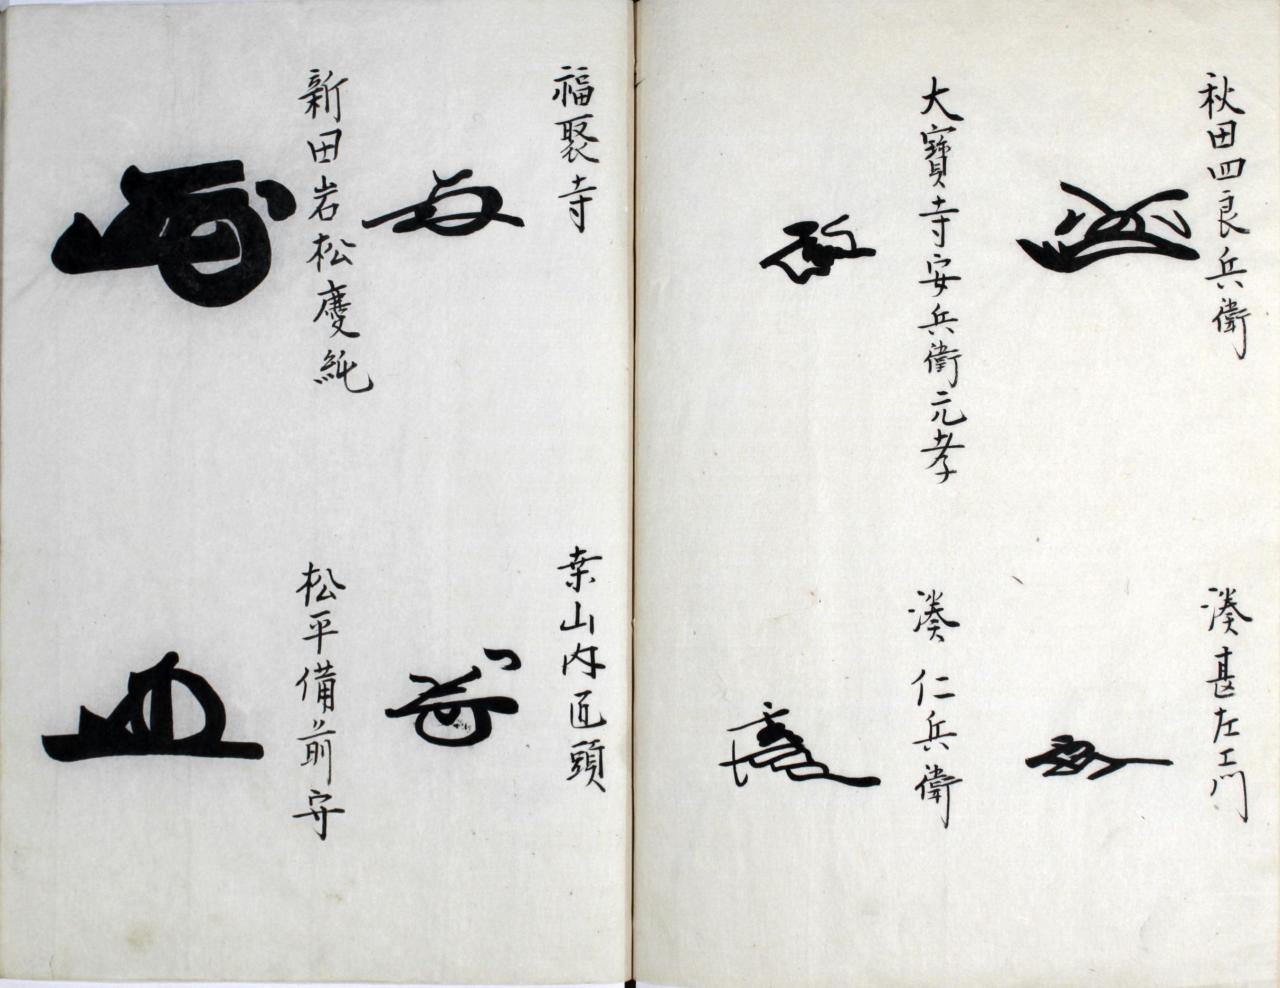 秋田四良兵衛
湊甚左エ門
大寳寺安兵衛元孝
湊仁兵衛
福聚寺
桒山内匠頭
新田岩松慶純
松平備前守